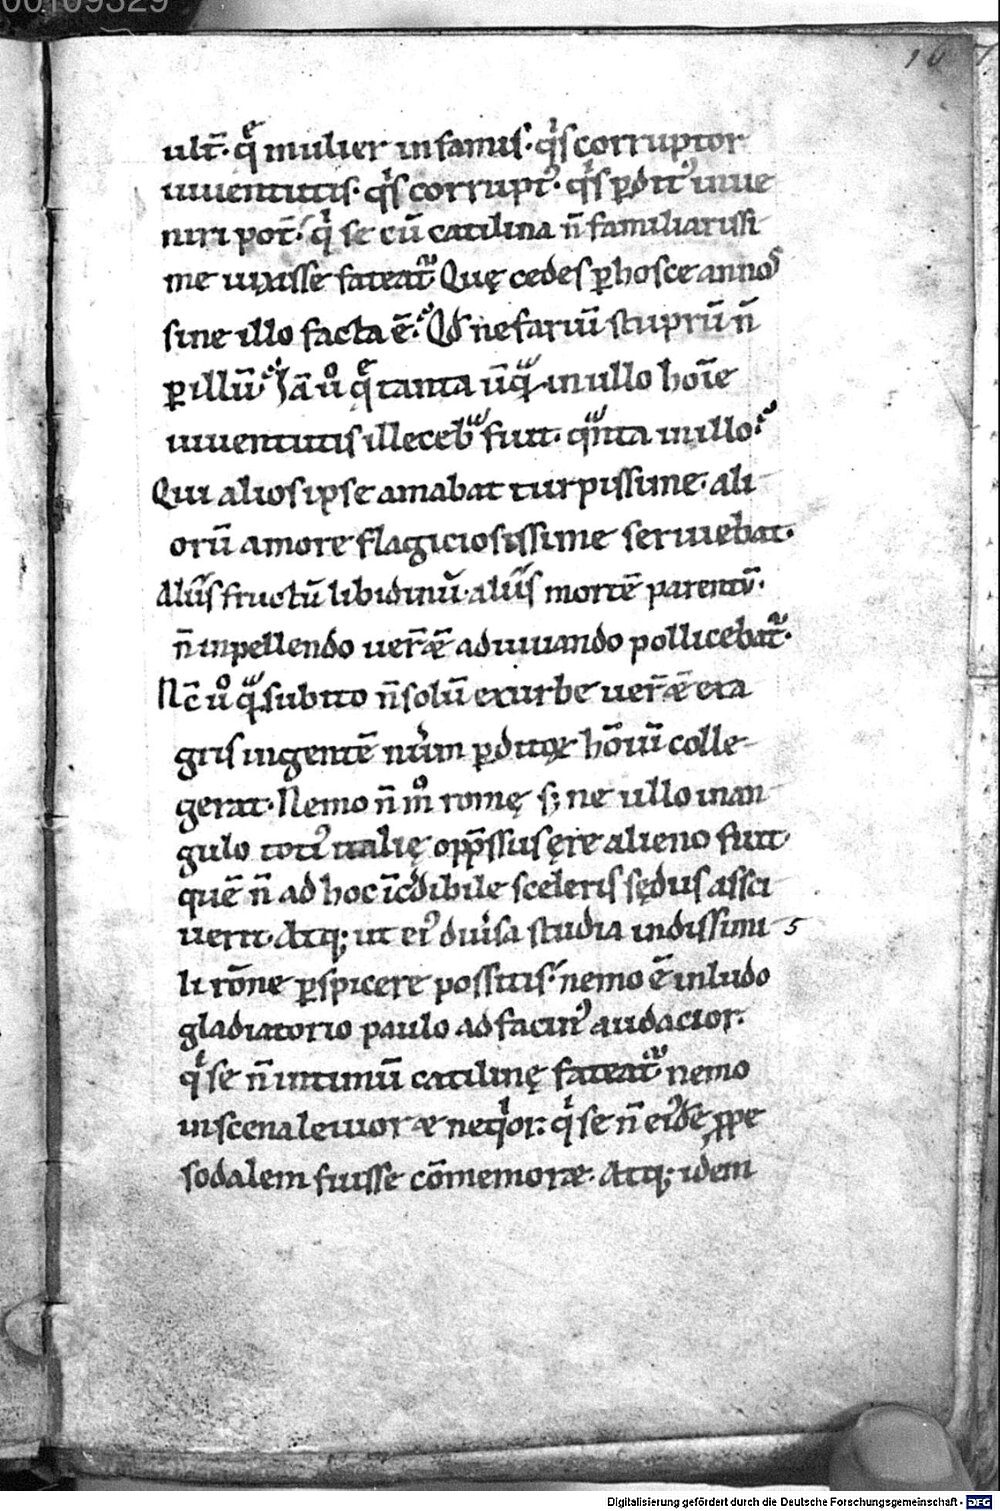 00109329
16
ult̄· q̄ͤ mulier infamis· qⁱs corruptor
iuuentutis· qⁱs corruptꝰ· qⁱs ꝑditꝰ inue
niri pot̄· qⁱ se cū catilina n̄ familiarissi
me uixisse fateat᷑ Quę cedes ꝑ hosce annos
sine illo facta ē· Qd̄ nefariū stuprū n̄
ꝑ illū· Iā u͛o q̄ͤ tanta ūqᵃ in ullo hoīe
iuuentutis illecebᵃ fuit· qᵃnta in illo·
Qui alios ipse amabat turpissime· ali
orū amore flagiciosissime seruiebat·
Aliis fructū libidinū· aliis mortē parentū·
n̄ inpellendo uer̄ ǣ adiuuando pollicebat᷑·
Nc̄ uͦ qᵃ subito n̄ solū ex urbe uer̄ ǣ ex a
gris ingentē num̄ ꝑditoꝝ hōiū colle
gerat· Nemo n̄ mͦ romę s; ne ullo in an
gulo totiꝰ italię opp̄ssus ęre alieno fuit
quē n̄ ad hoc īc̄dibile sceleris sędus assci
uerit· Atq; ut eiꝰ diuͥsa studia in dissimi 5
li rōne ꝑspicere possitis· nemo ē in ludo
gladiatorio paulo ad facinꝰ audacior·
qⁱ se n̄ intimū catilinę fateat᷑ nemo
in scena leuior æ neqⁱor· qⁱ se n̄ eiꝰdē ꝓpe
sodalem fuisse cōmemoræ· Atq; idem
Digitalisierung gefördert durch die Deutsche Forschungsgemeinschaft - DFG